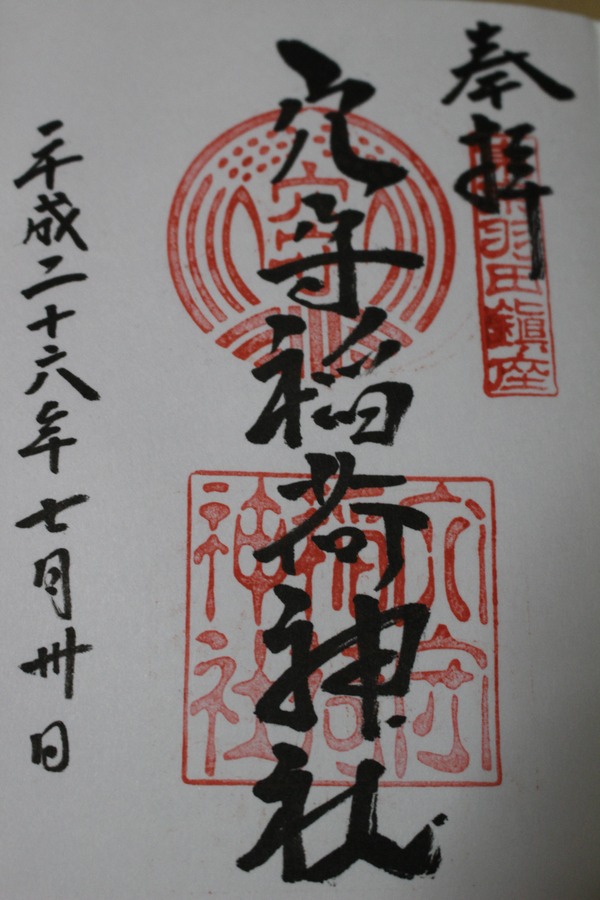 奉拝
羽田鎮座
穴守稲荷神社
穴守
穴守
稲荷
神社
平成二十六年七月卅日